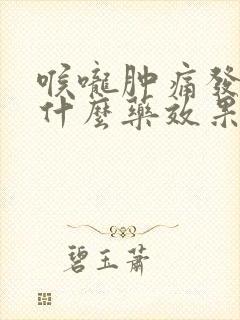 喉嚨肿痛發
什麼藥效果
碧玉蕭